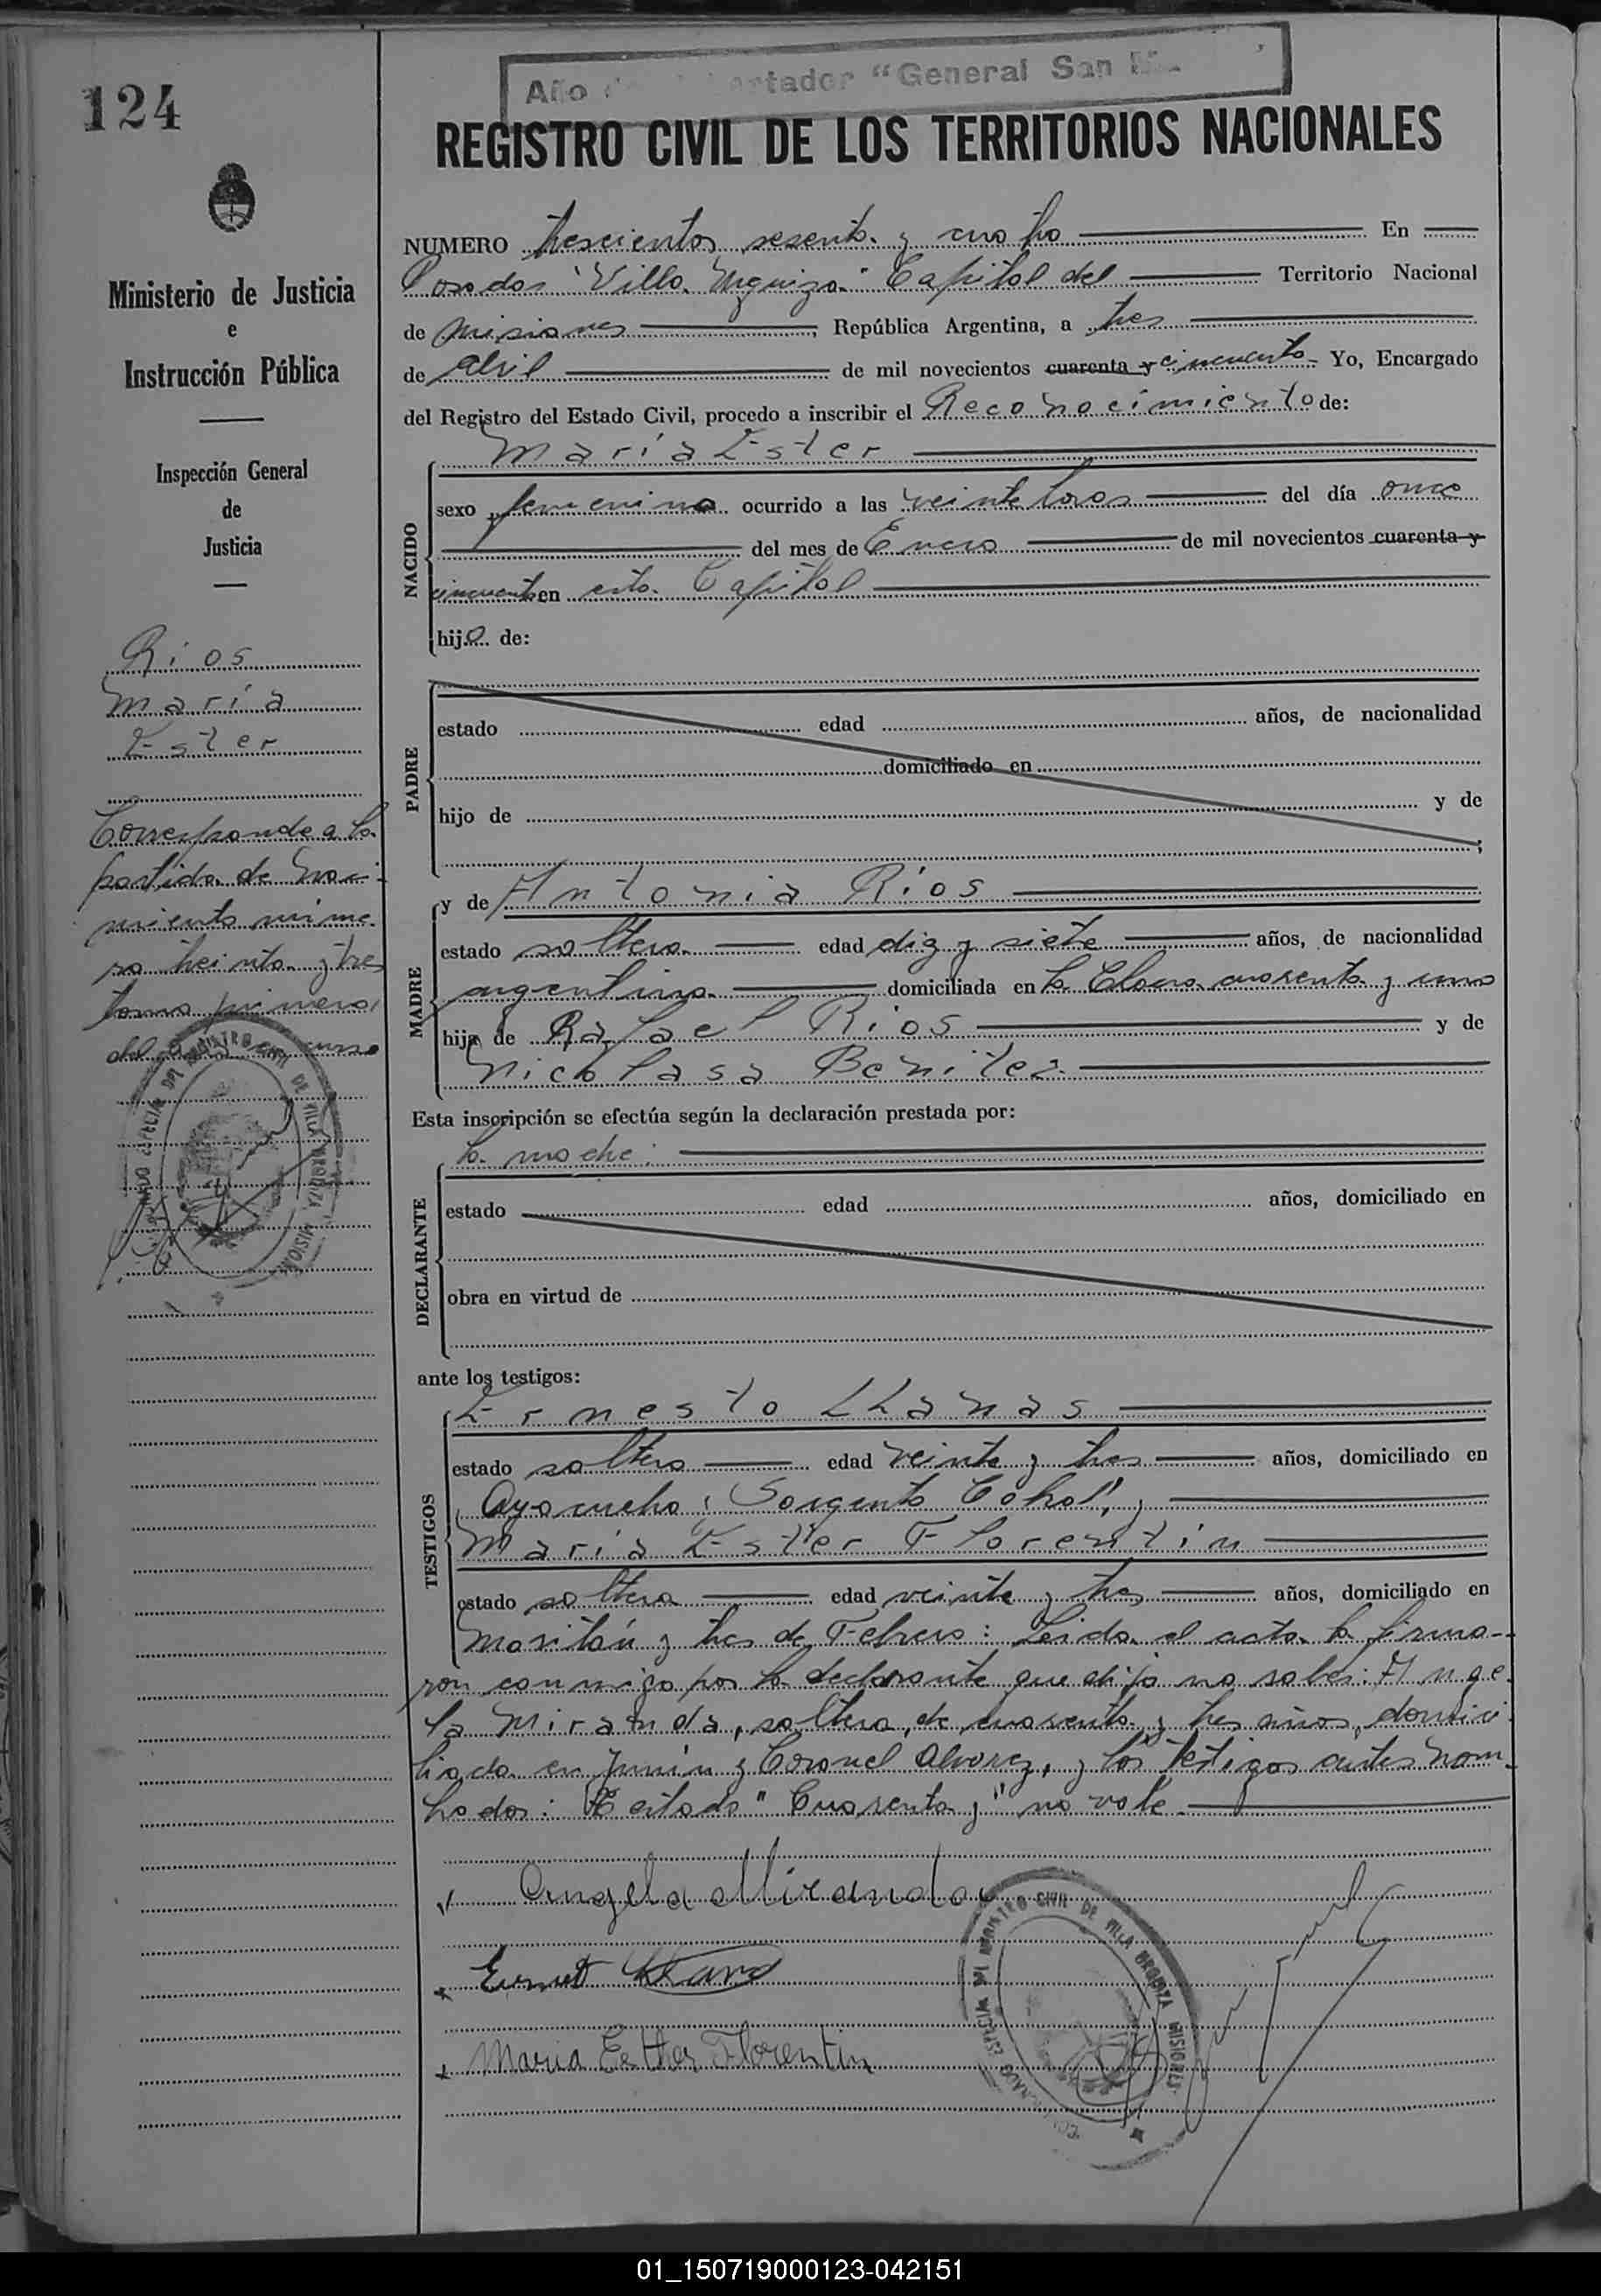 124
Año del Libertador "General San M
REGISTRO CIVIL DE LOS TERRITORIOS NACIONALES
Ministerio de Justicia
e
Instrucción Pública
Inspección General
de
Justicia
Rios
María
Ester
Corresponde a la
partida de naci-
miento núme-
ro treinta y tres
tomo primero,
del año en curso
NUMERO trescientos sesenta y cuatro En
Posadas "Villa Urquiza" Capital del Territorio Nacional
de Misiones, República Argentina, a tres
de Abril de mil novecientos cuarenta y cincuenta. Yo, Encargado
del Registro del Estado Civil, procedo a inscribir el Reconocimiento de:
María Ester
NACIDO
sexo femenino ocurrido a las veinte horas del día once
del mes de Enero de mil novecientos cuarenta y
cincuenta en esta Capital
hija de:
PADRE
estado edad años, de nacionalidad
domiciliado en
hijo de y de
;
MADRE
y de Antonia Rios
estado soltera edad diez y siete años, de nacionalidad
argentina domiciliada en la Chacra cuarenta y uno
hija de Rafael Rios y de
Nicolasa Benitez
Esta inscripción se efectúa según la declaración prestada por:
DECLARANTE
la madre.
estado edad años, domiciliado en
obra en virtud de
ante los testigos:
TESTIGOS
Ernesto LLanas
estado soltero edad veinte y tres años, domiciliado en
Ayacucho y Sargento Cabral, y
María Ester Florentin
estado soltera edad veinte y tres años, domiciliado en
Maritán y tres de Febrero: Leida el acta la firma-
ron conmigo por la declarante que dijo no saber: Ange-
la Miranda, soltera, de cuarenta y tres años, domici-
liada en Junín y Coronel Alvarez, y los testigos antes nom-
brados: Testado "Cuarenta y" no vale.
Angela Miranda
Ernesto LLanas
Maria Esther Florentin
ENCARGADO ESPECIAL DEL REGISTRO CIVIL DE VILLA URQUIZA MISIONES
ENCARGADO ESPECIAL DEL REGISTRO CIVIL DE VILLA URQUIZA MISIONES
01_150719000123-042151